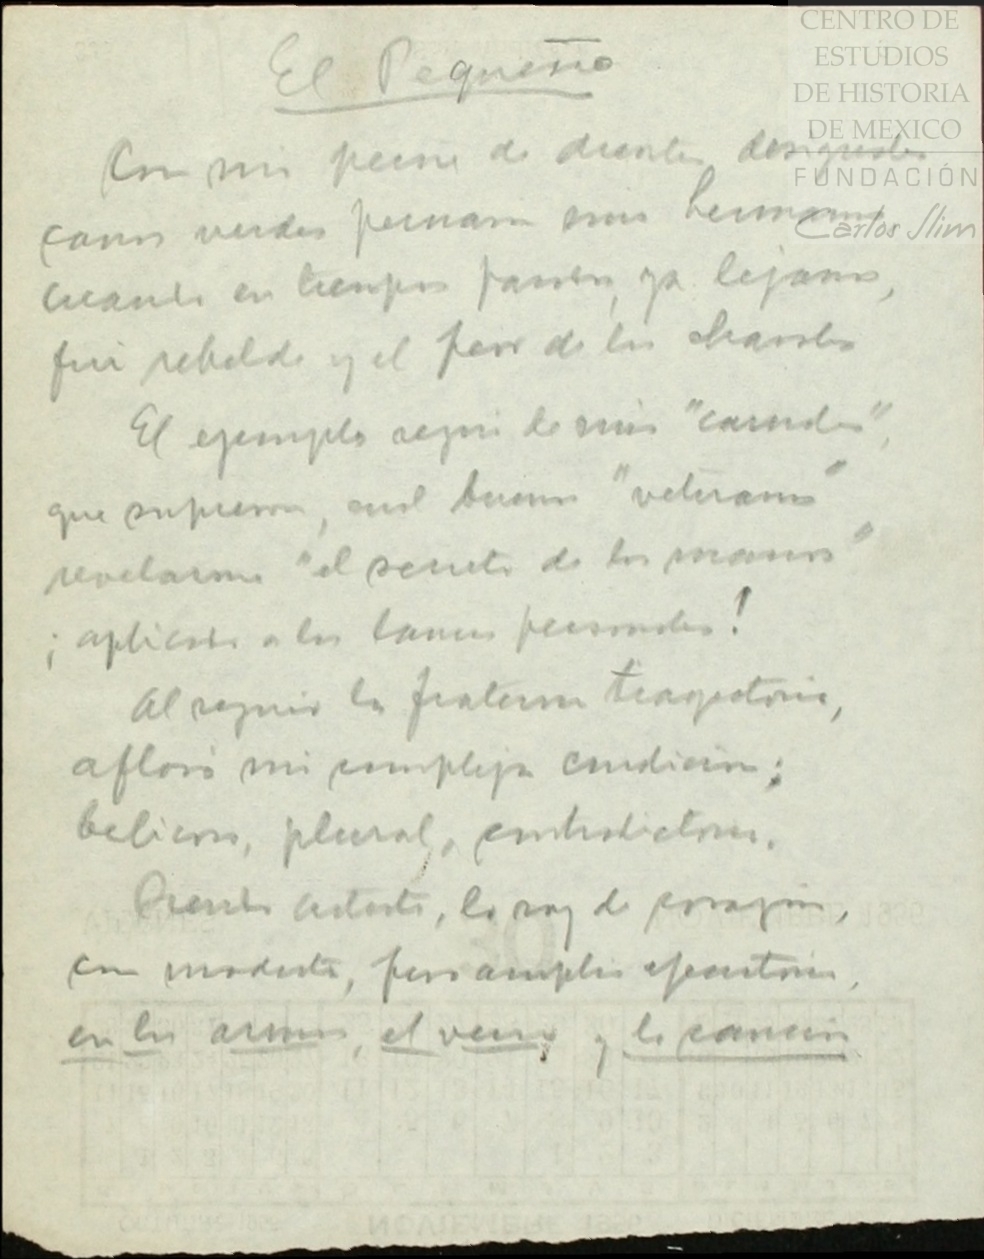 CENTRO DE
ESTUDIOS
DE HISTORIA
DE MEXICO
FUNDACIÓN
Carlos Slim
El Pequeño
Con mi peine de dientes desiguales
canas verdes peinaron mis hermanos
cuando en tiempos pasados, ya lejanos,
fui rebelde y el peor de los chavales
El ejemplo seguí de mis "carnales",
que supieron, cual buenos "veteranos"
revelarme "el secreto de las manos"
¡aplicado a los lances personales!
Al seguir la fraterna trayectoria,
afloró mi compleja condición;
belicoso, plural, contradictorio.
Siendo adusto, lo soy de corazón,
con modesta, pero amplia ejecutoria,
en las armas, el verso y la canción
NOVIEMBRE